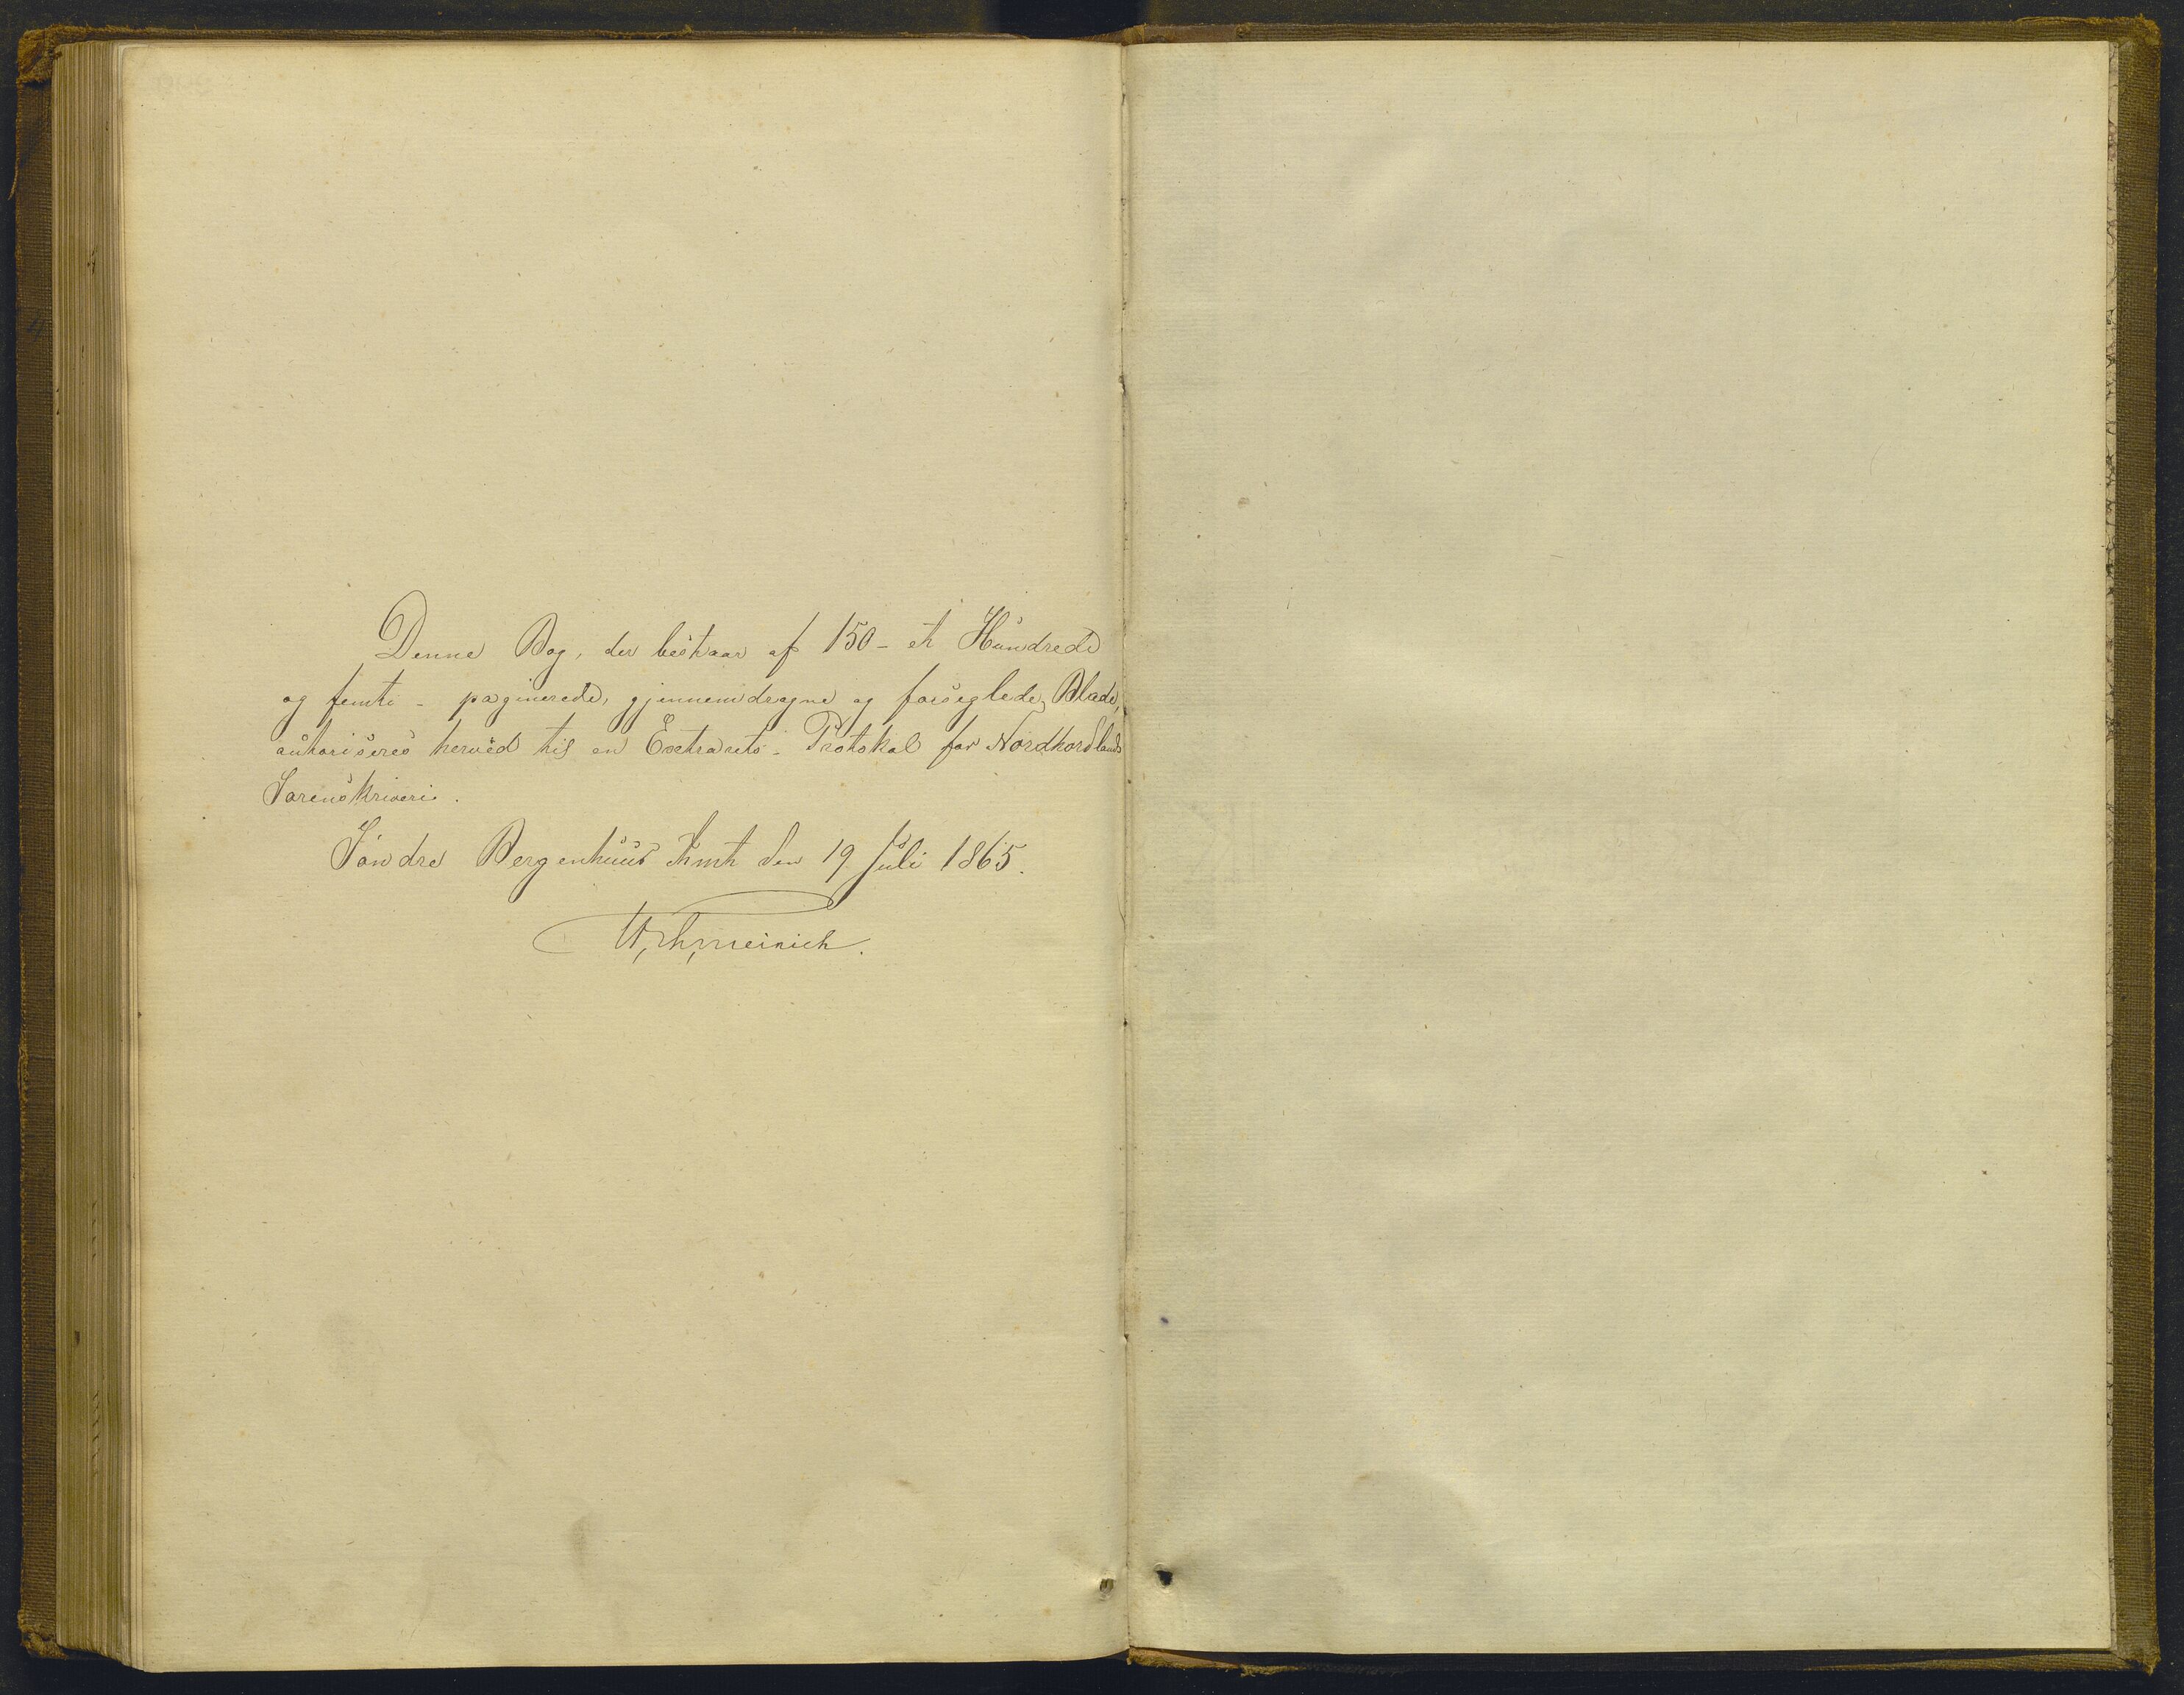 Denne Bog, der bestaar af 150 - et Hundrede
og femti - paginerede, gjennemdragne og forseglede Blade,
authoriseres herved til en Extrarets-Protokol for Nordhordlands
Sorenskriveri.
Søndre Bergenhuus Amt den 19 Juli 1865.